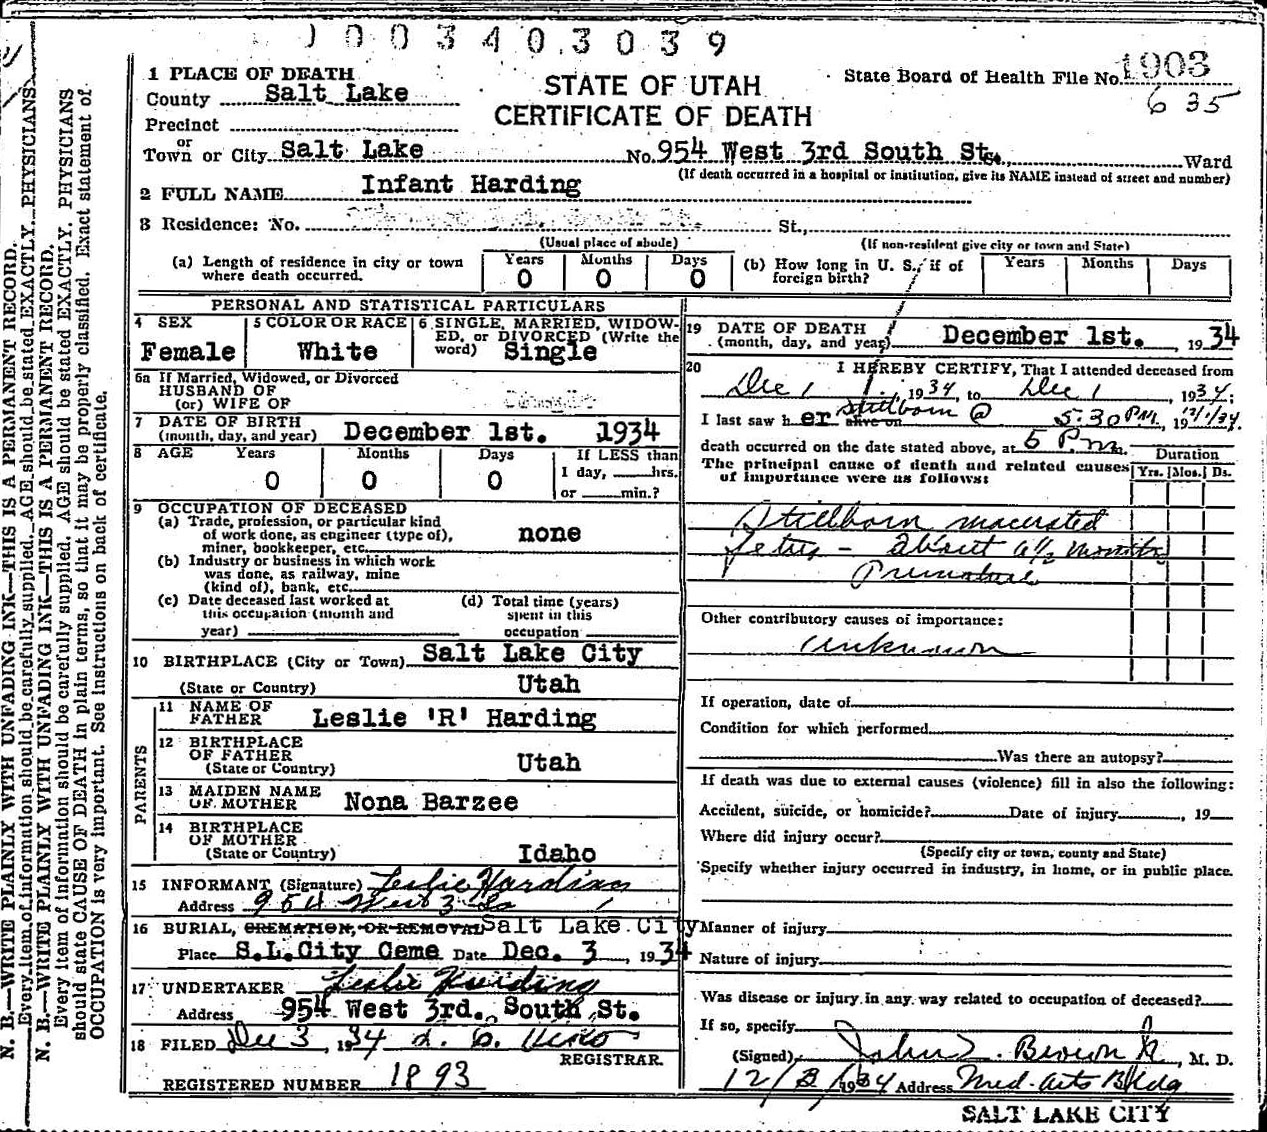 1003403039
1 PLACE OF DEATH
County Salt Lake
Precinct
or
Town or City Salt Lake
STATE OF UTAH
CERTIFICATE OF DEATH
State Board of Health File No. 1903
635
No. 954 West 3rd South St. St., Ward
(If death occurred in a hospital or institution, give its NAME instead of street and number)
2 FULL NAME Infant Harding
3 Residence: No. St.,
(Usual place of abode) (If non-resident give city or town and State)
(a) Length of residence in city or town where death occurred. Years 0 Months 0 Days 0
(b) How long in U. S., if of foreign birth? Years Months Days
PERSONAL AND STATISTICAL PARTICULARS
4 SEX Female
5 COLOR OR RACE White
6 SINGLE, MARRIED, WIDOWED, or DIVORCED (Write the word) Single
6a If Married, Widowed, or Divorced
HUSBAND OF
(or) WIFE OF
7 DATE OF BIRTH
(month, day, and year) December 1st. 1934
8 AGE Years 0 Months 0 Days 0 If LESS than
1 day, hrs.
or min.?
9 OCCUPATION OF DECEASED
(a) Trade, profession, or particular kind
of work done, as engineer (type of),
miner, bookkeeper, etc. none
(b) Industry or business in which work
was done, as railway, mine
(kind of), bank, etc.
(c) Date deceased last worked at
this occupation (month and
year)
(d) Total time (years)
spent in this
occupation
10 BIRTHPLACE (City or Town) Salt Lake City
(State or Country) Utah
PARENTS
11 NAME OF
FATHER Leslie 'R' Harding
12 BIRTHPLACE
OF FATHER
(State or Country) Utah
13 MAIDEN NAME
OF MOTHER Nona Barzee
14 BIRTHPLACE
OF MOTHER
(State or Country) Idaho
15 INFORMANT (Signature) Leslie Harding
Address 954 West 3 So
16 BURIAL, CREMATION, OR REMOVAL Salt Lake City
Place S.L.City Ceme Date Dec. 3, 1934
17 UNDERTAKER Leslie Harding
Address 954 West 3rd. South St.
18 FILED Dec 3, 1934
REGISTRAR.
REGISTERED NUMBER 1893
19 DATE OF DEATH
(month, day, and year) December 1st., 1934
20 I HEREBY CERTIFY, That I attended deceased from
Dec 1, 1934, to Dec 1, 1934;
I last saw her alive on stillborn @ 5:30 P.M., 19 12/1/34.
death occurred on the date stated above, at 5 P.m.
The principal cause of death and related causes
of importance were as follows:
Duration
Yrs. Mos. Ds.
Stillborn macerated
fetus - about 6½ months
Premature
Other contributory causes of importance:
Unknown
If operation, date of
Condition for which performed
Was there an autopsy?
If death was due to external causes (violence) fill in also the following:
Accident, suicide, or homicide? Date of injury, 19
Where did injury occur?
(Specify city or town, county and State)
Specify whether injury occurred in industry, in home, or in public place.
Manner of injury
Nature of injury
Was disease or injury in any way related to occupation of deceased?
If so, specify
(Signed) John Z. Brown Jr, M. D.
12/3/1934 Address Med. Arts Bldg
SALT LAKE CITY
N. B.—WRITE PLAINLY WITH UNFADING INK—THIS IS A PERMANENT RECORD.
Every item of information should be carefully supplied. AGE should be stated EXACTLY. PHYSICIANS
N. B.—WRITE PLAINLY WITH UNFADING INK—THIS IS A PERMANENT RECORD.
Every item of information should be carefully supplied. AGE should be stated EXACTLY. PHYSICIANS
should state CAUSE OF DEATH in plain terms, so that it may be properly classified. Exact statement of
OCCUPATION is very important. See instructions on back of certificate.